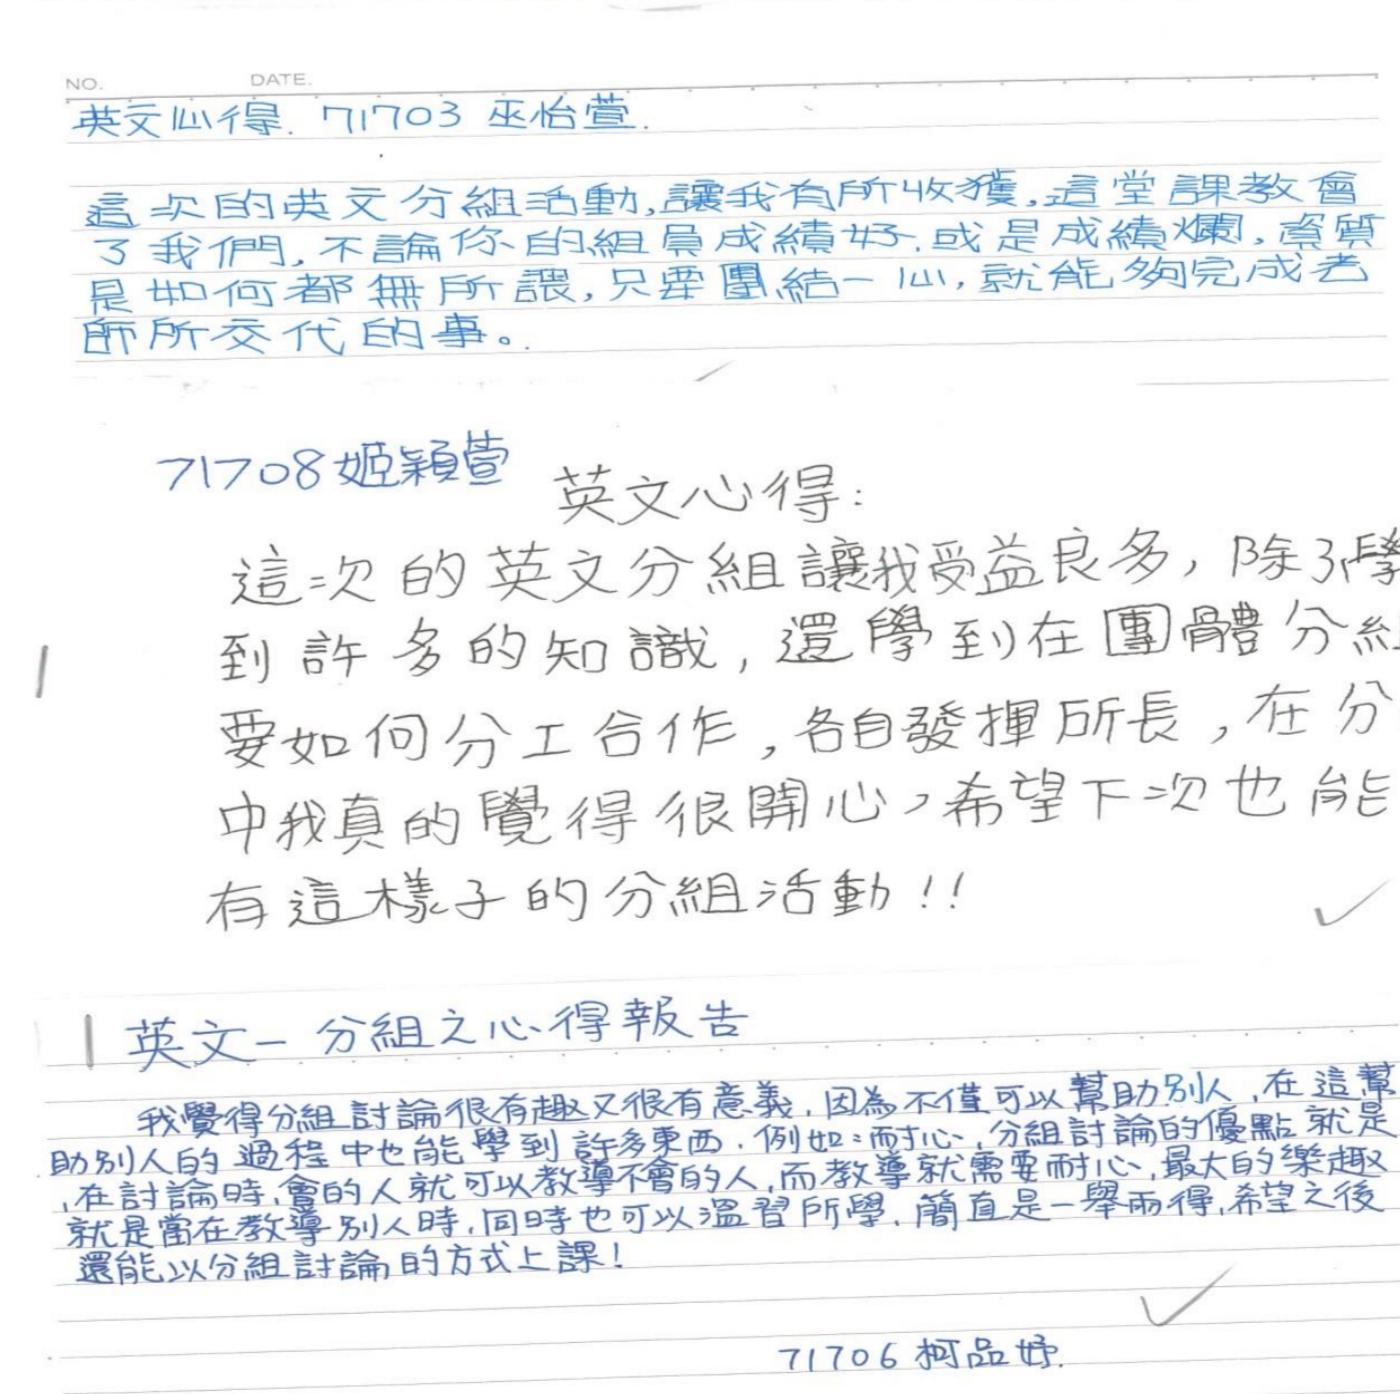 NO. DATE.
英文心得. 71703 巫怡萱.
這次的英文分組活動,讓我有所收獲,這堂課教會
了我們,不論你的組員成績好,或是成績爛,資質
是如何都無所謂,只要團結一心,就能夠完成老
師所交代的事。
71708 姬穎萱
英文心得:
這次的英文分組讓我受益良多,除了學
到許多的知識,還學到在團體分組
要如何分工合作,各自發揮所長,在分
中我真的覺得很開心,希望下次也能
有這樣子的分組活動!!
英文-分組之心得報告
我覺得分組討論很有趣又很有意義,因為不僅可以幫助別人,在這幫
助別人的過程中也能學到許多東西.例如:耐心,分組討論的優點就是
,在討論時,會的人就可以教導不會的人,而教導就需要耐心,最大的樂趣
就是當在教導別人時,同時也可以溫習所學,簡直是一舉兩得,希望之後
還能以分組討論的方式上課!
71706 柯品妤.